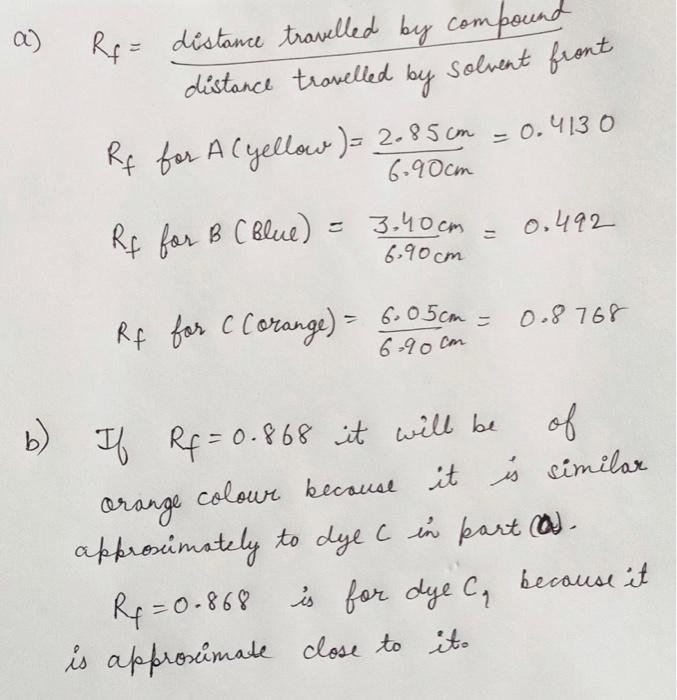 a) Rf = distance travelled by compound
distance travelled by solvent front
Rf for A (yellow) = 2.85 cm = 0.4130
6.90cm
Rf for B (Blue) = 3.40 cm = 0.492
6.90 cm
Rf for C (orange) = 6.05cm = 0.8768
6.90 cm
b) If Rf = 0.868 it will be of
orange colour because it is similar
approximately to dye C in part (a).
Rf = 0.868 is for dye C, because it
is approximate close to it.